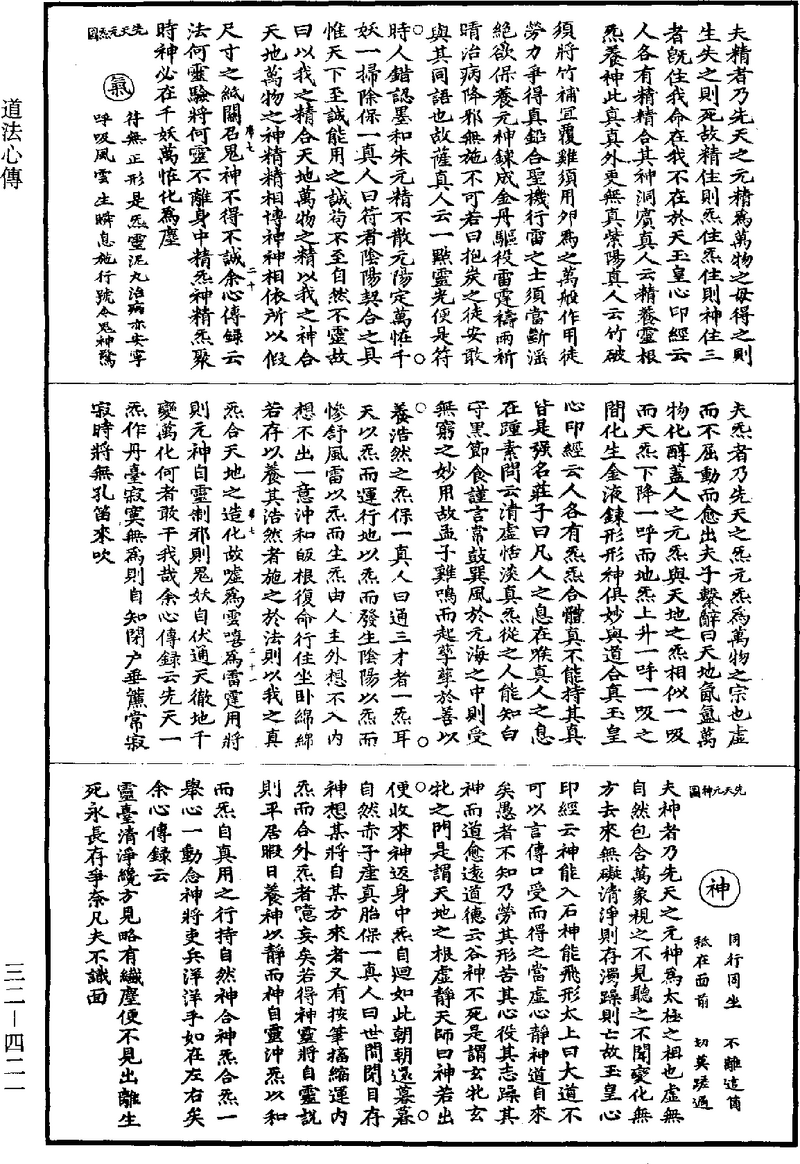 道法心傳
夫精者乃先天之元精為萬物之母得之則
生失之則死故精住則炁住炁住則神住三
者既住我命在我不在於天玉皇心印經云
人各有精精合其神洞賓真人云精養靈根
炁養神此真真外更無真紫陽真人云竹破
須將竹補宜覆雞須用卵為之萬般作用徒
勞力爭得真鉛合聖機行雷之士須當斷淫
絕慾保養元神鍊成金丹驅役雷霆禱雨祈
晴治病降邪無施不可若曰抱炭之徒安敢
與其同語也故薩真人云一點靈光便是符
時人錯認墨和朱元精不散元陽定萬怪千
妖一掃除保一真人曰符者陰陽契合之具
惟天下至誠能用之誠茍不至自然不靈故
曰以我之精合天地萬物之精以我之神合
天地萬物之神精精相博神神相依所以假
尺寸之紙關召鬼神不得不誠余心傳録云
法何靈驗將何靈不離身中精炁神精炁聚
時神必在千妖萬怪化為塵
先天元炁圖
氣
符無正形是炁靈泥丸治病亦安寧
呼吸風雲生瞬息施行號令鬼神驚
夫炁者乃先天之炁元炁為萬物之宗也虛
而不屈動而愈出夫子繫辭曰天地氤氳萬
物化醇蓋人之元炁與天地之炁相似一吸
而天炁下降一呼而地炁上升一呼一吸之
間化生金液鍊形形神俱妙與道合真玉皇
心印經云人各有炁炁合體真不能持其真
皆是强名莊子曰凡人之息在喉真人之息
在踵素問云清虛恬淡真炁從之人能知白
守黑節食謹言常鼓巽風於元海之中則受
無窮之妙用故孟子雞鳴而起孳孳於善以
養浩然之炁保一真人曰通三才者一炁耳
天以炁而運行地以炁而發生陰陽以炁而
慘舒風雷以炁而生炁由人主外想不入內
想不出一意沖和皈根復命行住坐卧綿綿
若存以養其浩然者施之於法則以我之真
炁合天地之造化故噓為雲嘻為雷霆用將
則元神自靈制邪則鬼妖自伏通天徹地千
變萬化何者敢干我哉余心傳録云先天一
炁作丹臺寂寞無為則自知閉户垂簾常寂
寂時將無孔笛來吹
先天元神圖
神
同行同坐　不離這箇
秖在面前　切莫蹉過
夫神者乃先天之元神為太極之祖也虛無
自然包含萬象視之不見聽之不聞變化無
方去來無礙清淨則存濁躁則亡故玉皇心
印經云神能入石神能飛形太上曰大道不
可以言傳口受而得之當虛心靜神道自來
矣愚者不知乃勞其形苦其心役其志躁其
神而道愈遠道德云谷神不死是謂玄牝玄
牝之門是謂天地之根虛靜天師曰神若出
便收來神返身中炁自迴如此朝朝還暮暮
自然赤子產真胎保一真人曰世間閉目存
神想某將自某方來者又有按筆搐縮運內
炁而合外炁者噫妄矣若得神靈將自靈説
則平居暇日養神以靜而神自靈沖炁以和
而炁自真用之行持自然神合神炁合炁一
舉心一動念神將吏兵洋洋乎如在左右矣
余心傳録云
靈臺清淨纔方見略有纎塵便不見出離生
死永長存爭奈凡夫不識面
三二—四二一